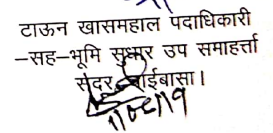 टाऊन खासमहाल पदाधिकारी
-सह-भूमि सुधार उप समाहर्त्ता
सदर चाईबासा।